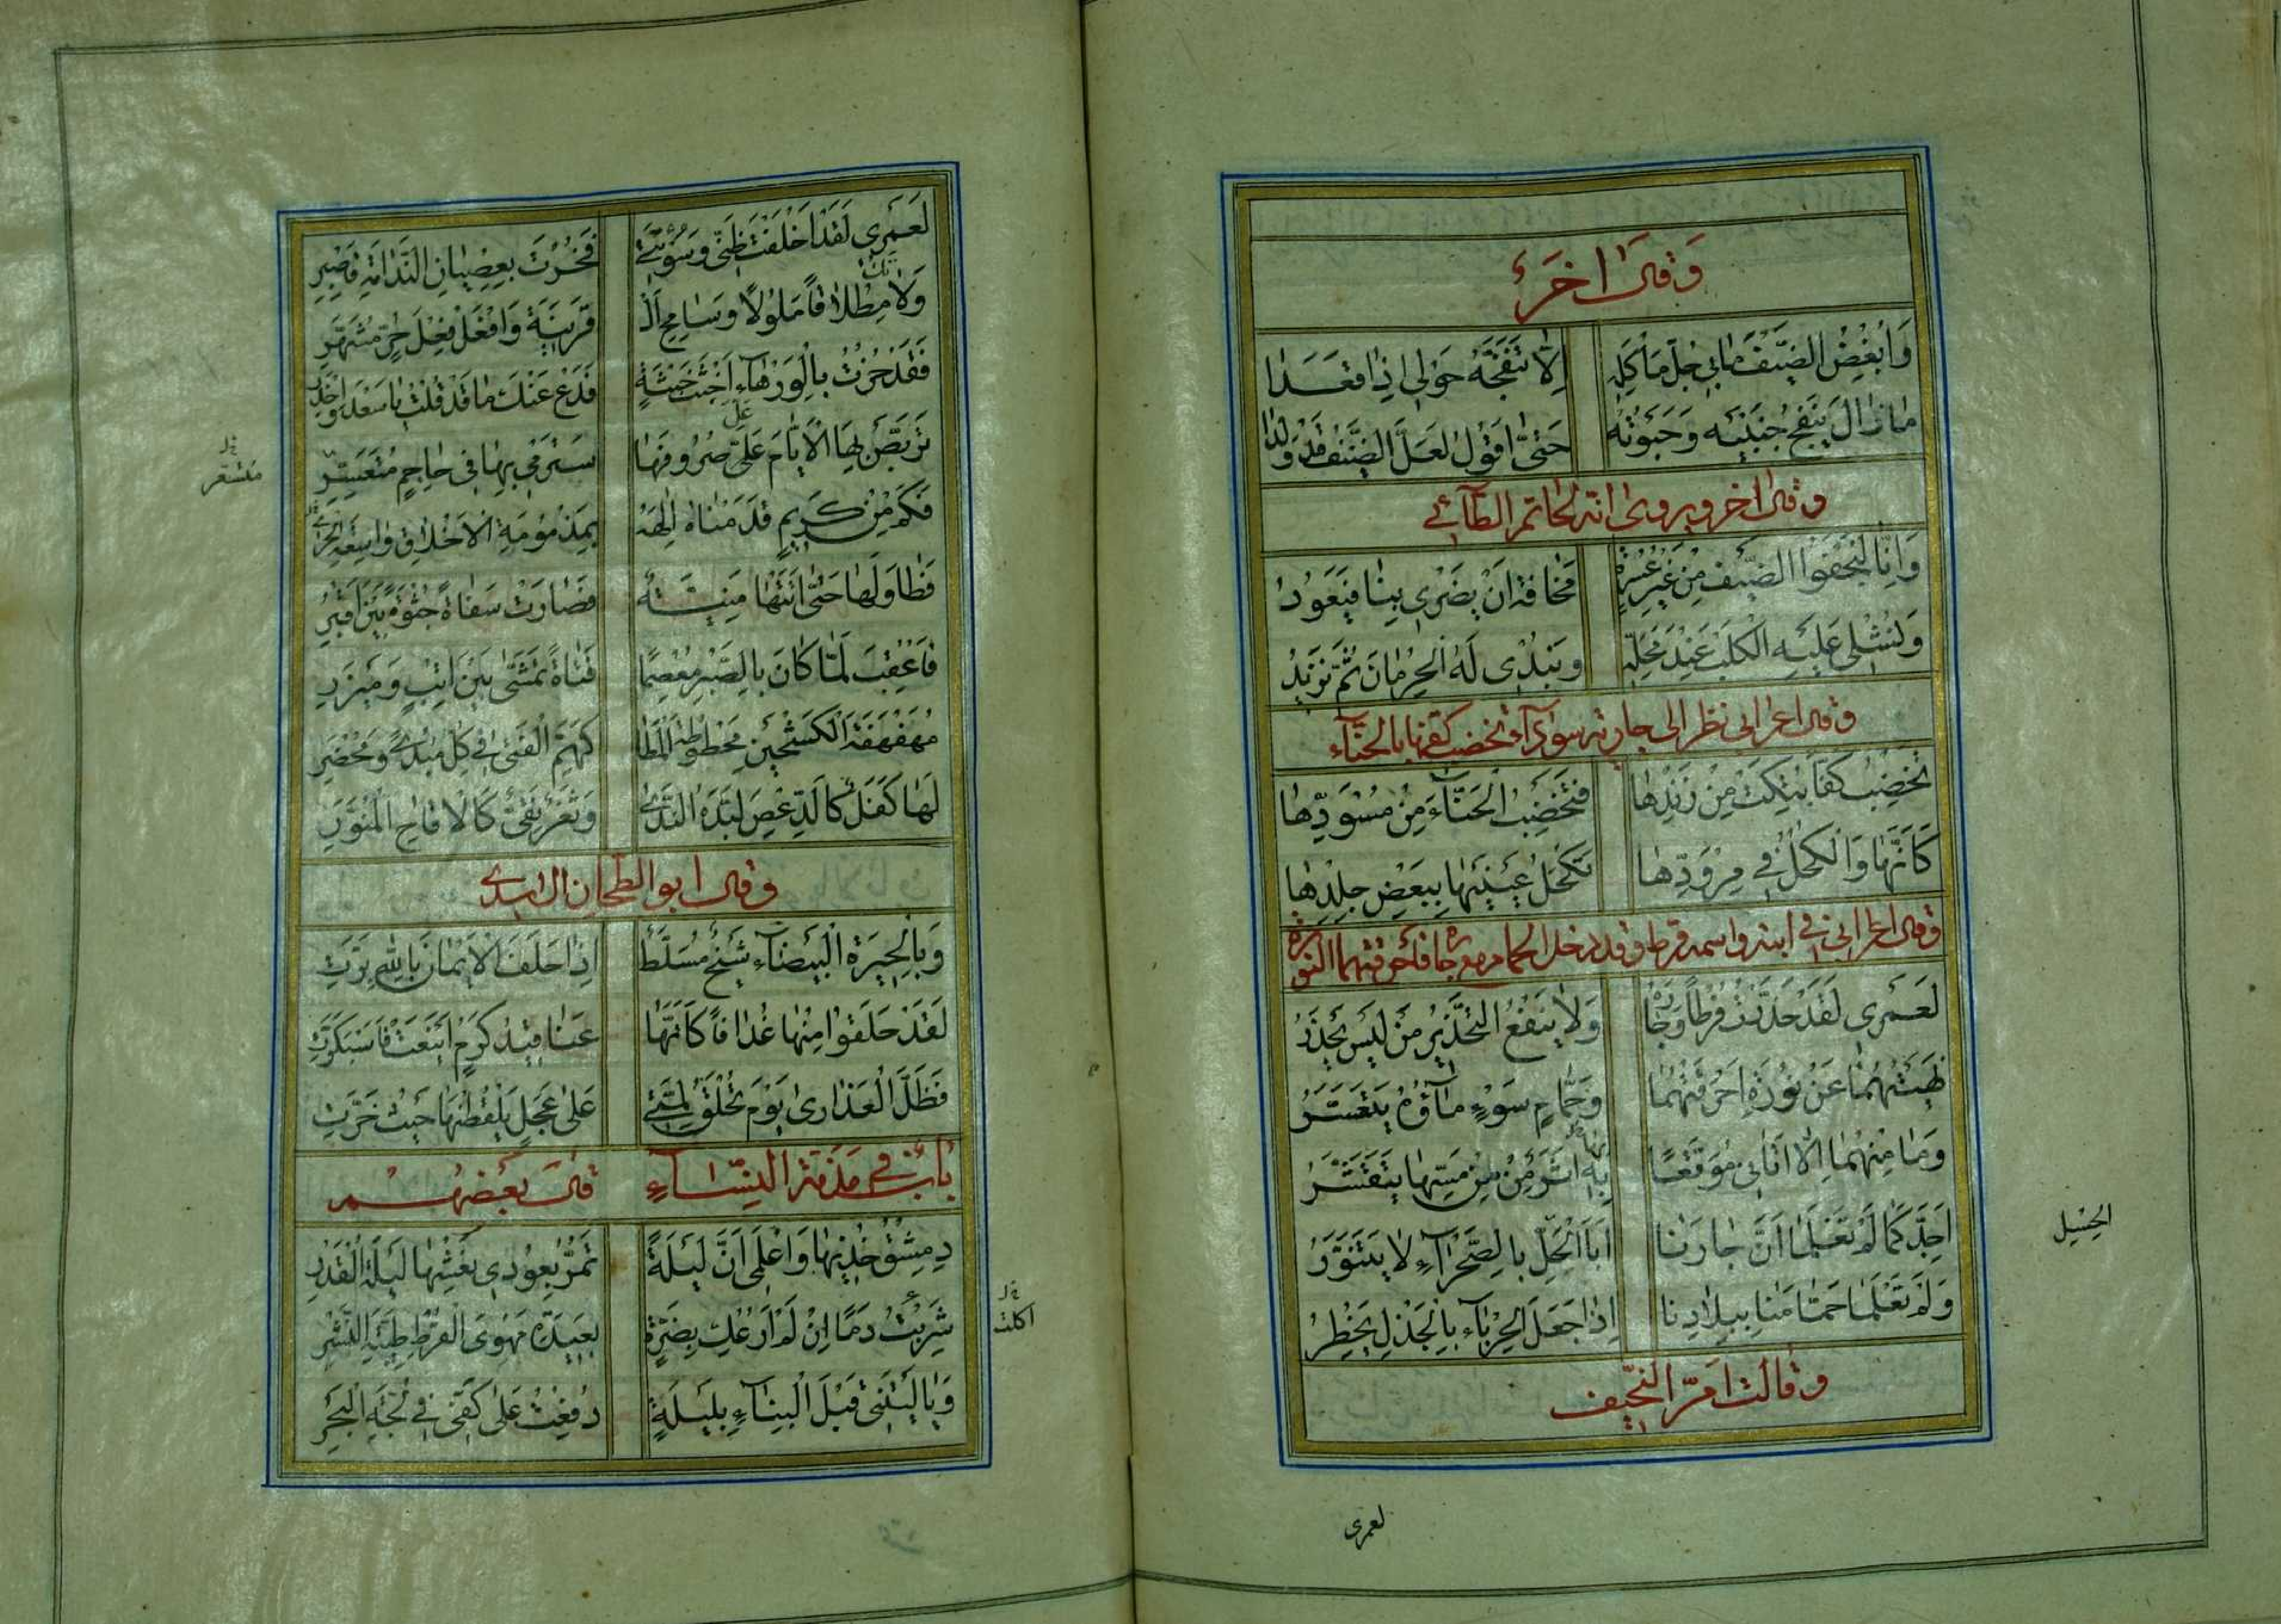 وَقَالَ اٰخَرُ
وَاُبْغِضُ الضَّيْفَ مَا بِي جُلُّ مَأكَلِهِ اِلَّا تَنَفُّجَهُ حَوْلِي اِذَا قَعَدَا
مَا زَالَ يَنْفُجُ جَنْبَيْهِ وَحَبْوَتَهُ حَتّٰى اَقُولُ لَعَلَّ الضَّيْفَ قَدْ وَلَدَا
وقال اخر ويروى انه لحاتم الطآئي
وَاِنَّا لَنَجْفُوا الضَّيْفَ مِنْ غَيْرِ عُسْرَةٍ مَخَافَةَ اَنْ يَضْرٰى بِنَا فَيَعُودُ
وَنُشْلِي عَلَيْهِ الْكَلْبَ عِنْدَ مَحَلِّهِ وَنُبْدِي لَهُ الْحِرْمَانَ ثُمَّ نَزِيدُ
وقال اعرابي نظر الى جارية سودآء تخضب كفها بالحنآء
تَخْضِبُ كَفًّا بُتِكَتْ مِنْ زَنْدِهَا فَتَخْضِبُ الْحَنَّآءَ مِنْ مُسْوَدِّهَا
كَاَنَّهَا وَالْكُحْلُ فِي مِرْوَدِّهَا تَكْحُلُ عَيْنَيْهَا بِبَعْضِ جِلْدِهَا
وقال اعرابي في ابنه واسمه قرط وقد دخل الحمام مع جاره فأحرقتهما النوره
لَعَمْرِي لَقَدْ حَذَّرْتُ قُرْطًا وَجَارَهُ وَلَا يَنْفَعُ التَّحْذِيرُ مَنْ لَيْسَ يَحْذَرُ
نَهَيْتُهُمَا عَنْ نُورَةٍ اَحْرَقَتْهُمَا وَحَمَّامِ سَوْءٍ مَآؤُهُ يَتَسَعَّرُ
وَمَا مِنْهُمَا اِلَّا اَتَانِي مُوَقَّعًا بِهِ اَثَرٌ مِنْ مَسِّهَا يَتَقَشَّرُ
اَجِدَّكُمَا لَمْ تَعْلَمَا اَنَّ جَارَنَا اَبَا الْحِسْلِ بِالصَّحْرَآءِ لَا يَتَنَوَّرُ
وَلَمْ تَعْلَمَا حَمَّامَنَا بِبِلَادِنَا اِذَا جَعَلَ الْحِرْبَآءُ بِالْجِذْلِ يَخْطِرُ
وقالت ام النحيف
لعمرى
لَعَمْرِي لَقَدْ اَخْلَفْتَ ظَنِّي وَسُؤْتَنِي فَحُزْتَ بِعِصْيَانِ النَّدَامَةِ فَاصْبِرِ
وَلَا تَكُ مِطْلَاقًا مَلُولًا وَسَامِحِ الْ قَرِينَةَ وَافْعَلْ فِعْلَ حُرٍّ مُشَهَّرِ
فَقَدْ حُزْتَ بِالْوَرْهَآءِ اَخْبَثَ خِبْثَةٍ فَدَعْ عَنْكَ مَا قَدْ قُلْتَ يَا سَعْدُ وَاحْذَرِ
تَرَبَّصْ بِهَا الْاَيَّامَ عَلَّ صُرُوفَهَا سَتَرْمِي بِهَا فِي جَاحِمٍ مُتَسَعِّرِ
فَكَمْ مِنْ كَرِيمٍ قَدْ مَنَاهُ اِلٰهُهُ بِمَذْمُومَةِ الْاَخْلَاقِ وَاسِعَةِ الْحِرِ
فَطَاوَلَهَا حَتّٰى اَتَتْهَا مَنِيَّةٌ فَصَارَتْ سَفَاةً جُثْوَةً بَيْنَ اَقْبُرِ
فَاُعْقِبَ لَمَّا كَانَ بِالصَّبْرِ مُعْصِمًا فَتَاةً تَمَشّٰى بَيْنَ اِتْبٍ وَمِئْزَرِ
مُهَفْهَفَةَ الْكَشْحَيْنِ مَحْطُوطَةَ الْمَطَا كَهَمِّ الْفَتٰى فِي كُلِّ مَبْدًى وَمَحْضَرِ
لَهَا كَفَلٌ كَالدِّعْصِ لَبَّدَهُ النَّدٰى وَثَغْرٌ نَقِيٌّ كَالْاَقَاحِ الْمُنَوَّرِ
وقال ابو الطمحان الاسدي
وَبِالْحِيرَةِ الْبَيْضَآءِ شَيْخٌ مُسَلَّطٌ اِذَا حَلَفَ الْاَيْمَانَ بِاللّٰهِ بَرَّتِ
لَقَدْ حَلَقُوا مِنْهَا غُدَافًا كَاَنَّهَا عَنَاقِيدُ كَرْمٍ اَيْنَعَتْ فَاسْبَكَرَّتِ
فَظَلَّ الْعَذَارٰى يَوْمَ تُحْلَقُ لِمَّتِي عَلٰى عَجَلٍ يَلْقُطْنَهَا حَيْثُ خَرَّتِ
بَابٌ فِي مَذَمَّةِ النِّسَآءِ قَالَ بَعْضُهُمْ
دِمَشْقُ خُذِيهَا وَاعْلَمِي اَنَّ لَيْلَةً تَمُرُّ بِعُودَيْ نَعْشِهَا لَيْلَةُ الْقَدْرِ
شَرِبْتُ دَمًا اِنْ لَمْ اَرُعْكِ بِضَرَّةٍ بَعِيدَةِ مَهْوَى الْقُرْطِ طَيِّبَةِ النَّشْرِ
اكلت
وَيَا لَيْتَنِي قَبْلَ الْبِنَآءِ بِلَيْلَةٍ دُفِعْتُ عَلٰى كَفِّي فِي لُجَّةِ الْبَحْرِ